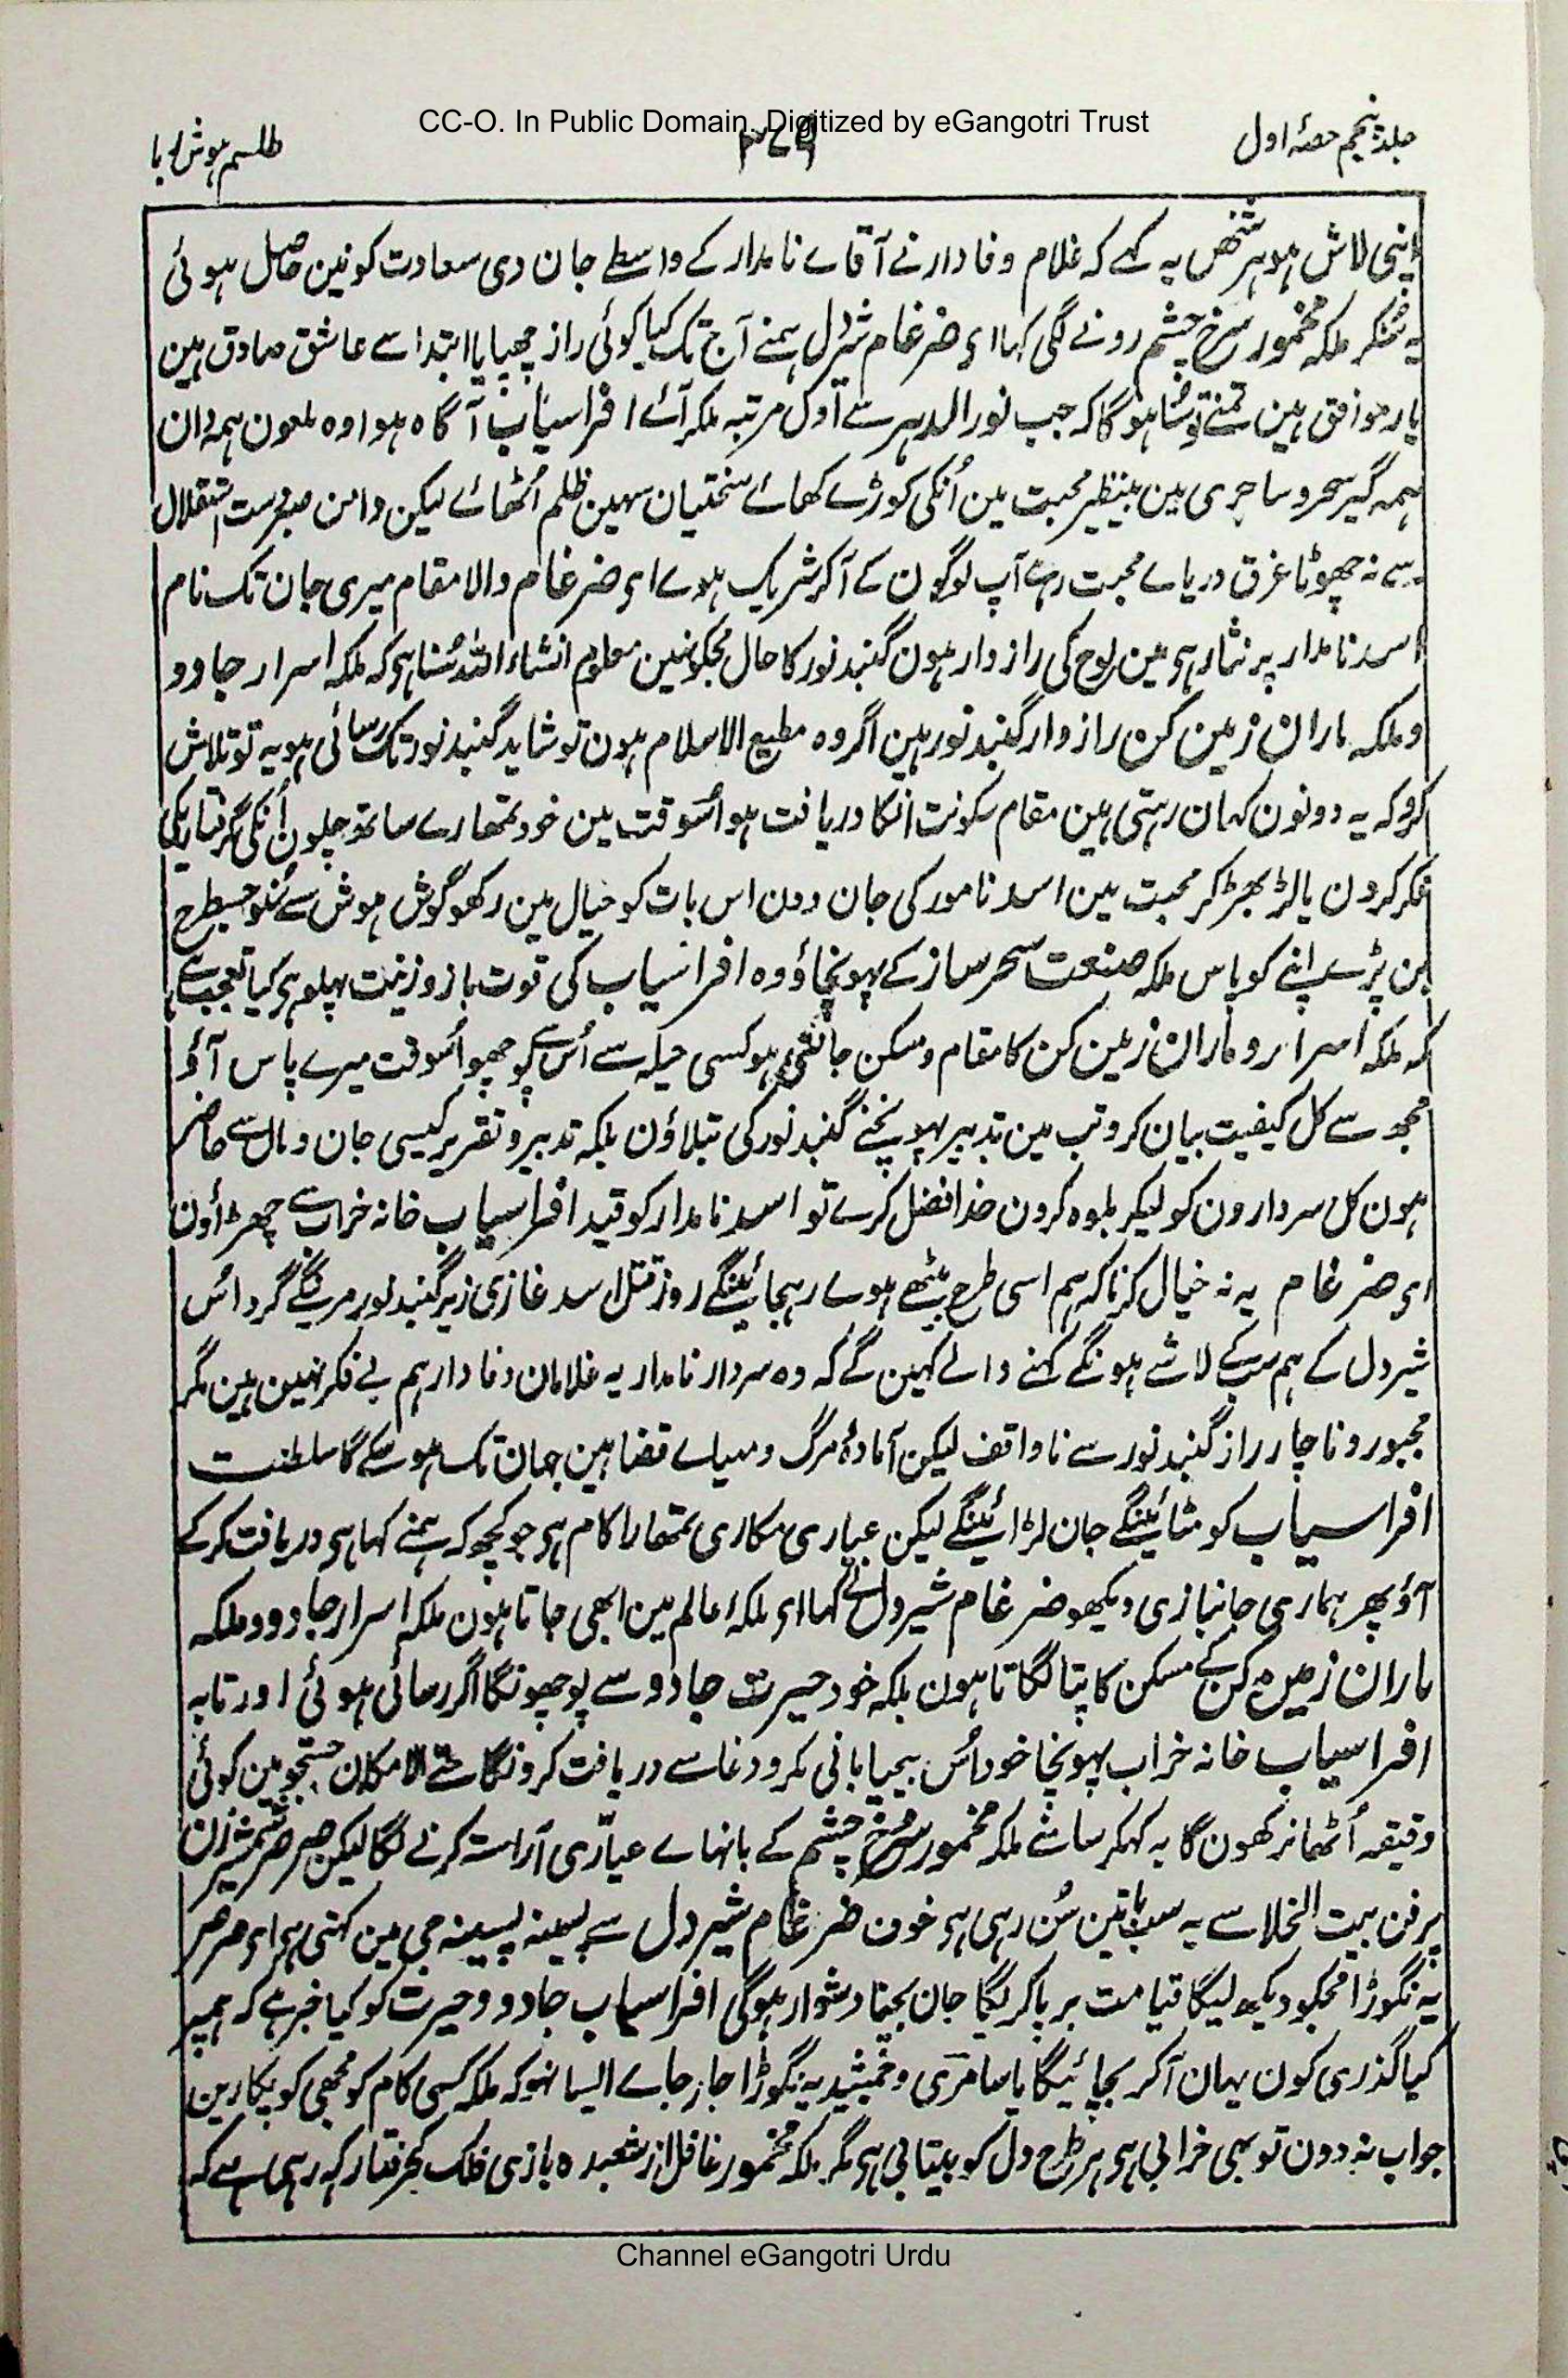 CC-O. In Public Domain. Digitized by eGangotri Trust
جلد پنجم حصۂ اول
طلسم ہوش ربا
اپنی لاش ہو ہر شخص یہ کہے کہ غلام وفادار نے آقاے نامدار کے واسطے جان دی سعادت کونین حاصل ہوئی
یہ سُنکر ملکہ مخمور سرخ چشم رونے لگی کہا اے ضرغام شیردل ہمنے آج تک کیا کوئی راز چھپایا ابتدا سے عاشق صادق ہین
یار موافق ہین تمنے تو سُنا ہوگا کہ جب نورالدہر سے اول مرتبہ ملکر آئے افراسیاب آگاہ ہوا وہ ملعون ہمہ دان
ہمہ گیر سحر و ساحری مین بینظیر محبت مین اُنکی کوڑے کھائے سختیان سہین ظلم اُٹھائے لیکن دامن صبر دست استقلال
سے نہ چھوٹا غرق دریاے محبت رہے آپ لوگون کے آکر شریک ہوے اے ضرغام والا مقام میری جان تک نام
اسد نامدار پر نثار ہی مین لوح کی رازدار ہون گنبد نور کا حال مجکو نہین معلوم انشاء اللہ سُنا ہی کہ ملکہ اسرار جادو
و ملکہ باران زمین کن رازدار گنبد نور ہین اگر وہ مطیع الاسلام ہون تو شاید گنبد نور تک رسائی ہو یہ تو تلاش
کرو کہ یہ دونون کہان رہتی ہین مقام سکونت انکا دریافت ہو اُسوقت مین خود تمھارے ساتھ چلون اُنکی گرفتاری کی
فکر کردن یا لڑ بھڑ کر محبت مین اسد نامور کی جان دون اس بات کو خیال مین رکھو گوش ہوش سے سُنو جسطرح
بن پڑے اپنے کو پاس ملکہ صنعت سحر ساز کے پہونچاؤ وہ افراسیاب کی قوت بازو زینت پہلو ہی کیا تعجب ہے
کہ ملکہ اسرار و باران زمین کن کا مقام و مسکن جانتی ہو کسی حیلہ سے اُس سے پوچھو اُسوقت میرے پاس آؤ
مجھ سے کل کیفیت بیان کرو تب مین تدبیر پہونچنے گنبد نور کی بتلاؤن بلکہ تدبیر و تقریر کیسی جان و مال سے حاضر
ہون کل سردارون کو لیکر بلوہ کرون خدا فضل کرے تو اسد نامدار کو قید افراسیاب خانہ خراب سے چھڑاؤن
اے ضرغام یہ نہ خیال کرنا کہ ہم اسی طرح بیٹھے ہوے رہجائینگے روز قتل اسد غازی زیر گنبد نور مرینگے گرد اُس
شیر دل کے ہم سب کے لاشے ہونگے کہنے والے کہین گے کہ وہ سردار نامدار یہ غلامان وفادار ہم بے فکر نہین ہین مگر
مجبور و ناچار راز گنبد نور سے ناواقف لیکن آمادۂ مرگ و مہیاے قضا ہین جہان تک ہو سکے گا سلطنت
افراسیاب کو مٹائینگے جان لڑائینگے لیکن عیاری مکاری تمھارا کام ہی جو کچھ کہ ہمنے کہا ہی دریافت کر کے
آؤ پھر ہماری جانبازی دیکھو ضرغام شیردل نے کہا اے ملکہ عالم مین ابھی جاتا ہون ملکہ اسرار جادو و ملکہ
باران زمین کن کے مسکن کا پتا لگاتا ہون بلکہ خود حیرت جادو سے پوچھونگا اگر رسائی ہوئی اور تا بہ
افراسیاب خانہ خراب پہونچا خود اُس بیحیا بانی مکر و دغا سے دریافت کرونگا حتے الامکان جستجو مین کوئی
دقیقہ اُٹھا نرکھون گا یہ کہکر سامنے ملکہ مخمور سرخ چشم کے بانہاے عیاری آراستہ کرنے لگا لیکن صرصر شمشیر زن
پرفن بیت الخلا سے یہ سب باتین سُن رہی ہی خون ضرغام شیر دل سے پسینہ پسینہ جی مین کہتی ہی اے صرصر
یہ نگوڑا مجکو دیکھ لیگا قیامت برپا کر لگا جان بچنا دشوار ہوگی افراسیاب جادو و حیرت کو کیا خبر ہے کہ ہمپر
کیا گذری کون یہان آکر بچائیگا یا سامری و جمشید یہ نگوڑا جاز جاے ایسا نہو کہ ملکہ کسی کام کو مجھی کو پکارین
جواب نہ دون تو بھی خرابی ہی ہر طرح دل کو بیتابی ہی مگر ملکہ مخمور غافل از شعبدہ بازی فلک کجرفتار کہ رہی ہے کہ
Channel eGangotri Urdu